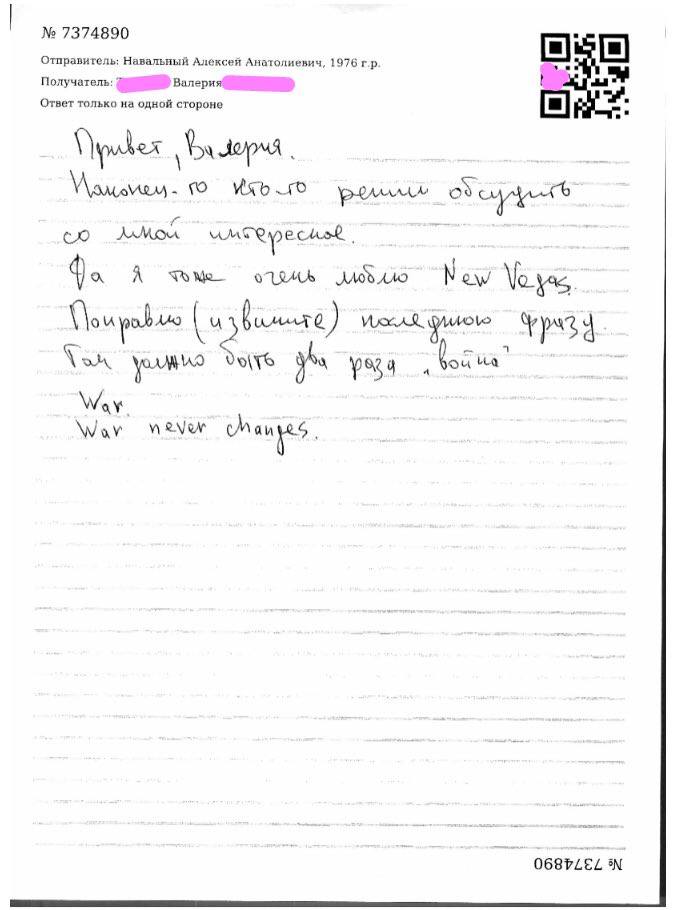 № 7374890
Отправитель: Навальный Алексей Анатолиевич, 1976 г.р.
Получатель: Валерия
Ответ только на одной стороне
Привет, Валерия.
Наконец-то кто-то решил обсудить
со мной интересное.
Да я тоже очень люблю New Vegas.
Поправлю (извините) последнюю фразу.
Там должно быть два раза „война”
War.
War never changes.
№ 7374890